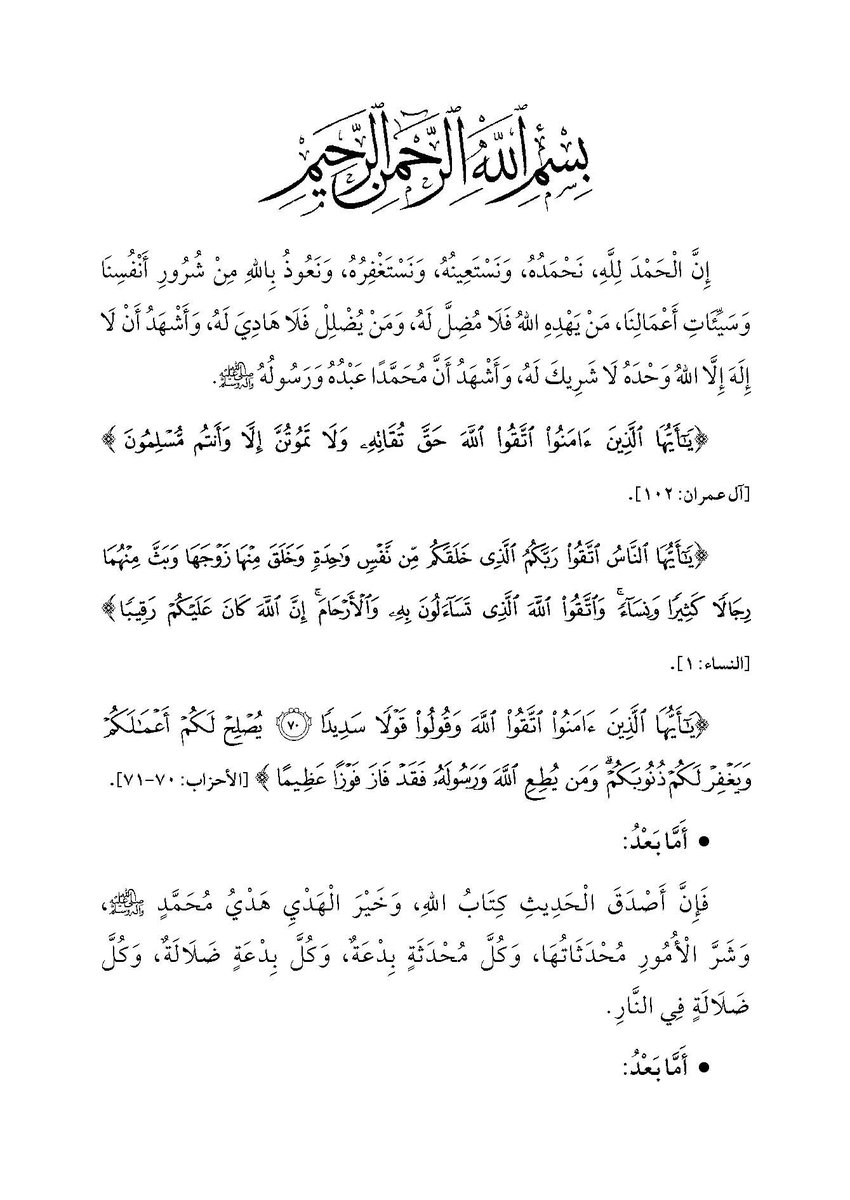 بِسْمِ اللَّهِ الرَّحْمَنِ الرَّحِيمِ
إِنَّ الْحَمْدَ لِلَّهِ، نَحْمَدُهُ، وَنَسْتَعِينُهُ، وَنَسْتَغْفِرُهُ، وَنَعُوذُ بِاللهِ مِنْ شُرُورِ أَنْفُسِنَا
وَسَيِّئَاتِ أَعْمَالِنَا، مَنْ يَهْدِهِ اللهُ فَلَا مُضِلَّ لَهُ، وَمَنْ يُضْلِلْ فَلَا هَادِيَ لَهُ، وَأَشْهَدُ أَنْ لَا
إِلَهَ إِلَّا اللهُ وَحْدَهُ لَا شَرِيكَ لَهُ، وَأَشْهَدُ أَنَّ مُحَمَّدًا عَبْدُهُ وَرَسُولُهُ ﷺ.
﴿يَٰٓأَيُّهَا ٱلَّذِينَ ءَامَنُوا۟ ٱتَّقُوا۟ ٱللَّهَ حَقَّ تُقَاتِهِۦ وَلَا تَمُوتُنَّ إِلَّا وَأَنتُم مُّسْلِمُونَ﴾
[آل عمران: ١٠٢].
﴿يَٰٓأَيُّهَا ٱلنَّاسُ ٱتَّقُوا۟ رَبَّكُمُ ٱلَّذِى خَلَقَكُم مِّن نَّفْسٍ وَٰحِدَةٍ وَخَلَقَ مِنْهَا زَوْجَهَا وَبَثَّ مِنْهُمَا
رِجَالًا كَثِيرًا وَنِسَآءً ۚ وَٱتَّقُوا۟ ٱللَّهَ ٱلَّذِى تَسَآءَلُونَ بِهِۦ وَٱلْأَرْحَامَ ۚ إِنَّ ٱللَّهَ كَانَ عَلَيْكُمْ رَقِيبًا﴾
[النساء: ١].
﴿يَٰٓأَيُّهَا ٱلَّذِينَ ءَامَنُوا۟ ٱتَّقُوا۟ ٱللَّهَ وَقُولُوا۟ قَوْلًا سَدِيدًا ٧٠ يُصْلِحْ لَكُمْ أَعْمَٰلَكُمْ
وَيَغْفِرْ لَكُمْ ذُنُوبَكُمْ ۗ وَمَن يُطِعِ ٱللَّهَ وَرَسُولَهُۥ فَقَدْ فَازَ فَوْزًا عَظِيمًا﴾ [الأحزاب: ٧٠-٧١].
• أَمَّا بَعْدُ:
فَإِنَّ أَصْدَقَ الْحَدِيثِ كِتَابُ اللهِ، وَخَيْرَ الْهَدْيِ هَدْيُ مُحَمَّدٍ ﷺ،
وَشَرَّ الْأُمُورِ مُحْدَثَاتُهَا، وَكُلَّ مُحْدَثَةٍ بِدْعَةٌ، وَكُلَّ بِدْعَةٍ ضَلَالَةٌ، وَكُلَّ
ضَلَالَةٍ فِي النَّارِ.
• أَمَّا بَعْدُ: